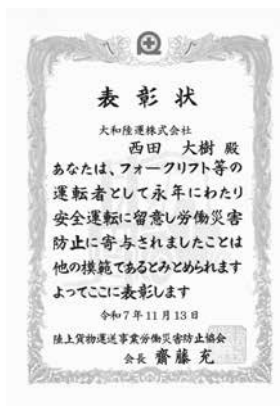 表彰状
大和陸運株式会社
西田 大樹 殿
あなたは、フォークリフト等の
運転者として永年にわたり
安全運転に留意し労働災害
防止に寄与されましたことは
他の模範であるとみとめられます
よってここに表彰します
令和7年11月13日
陸上貨物運送事業労働災害防止協会
会長 齋藤 充